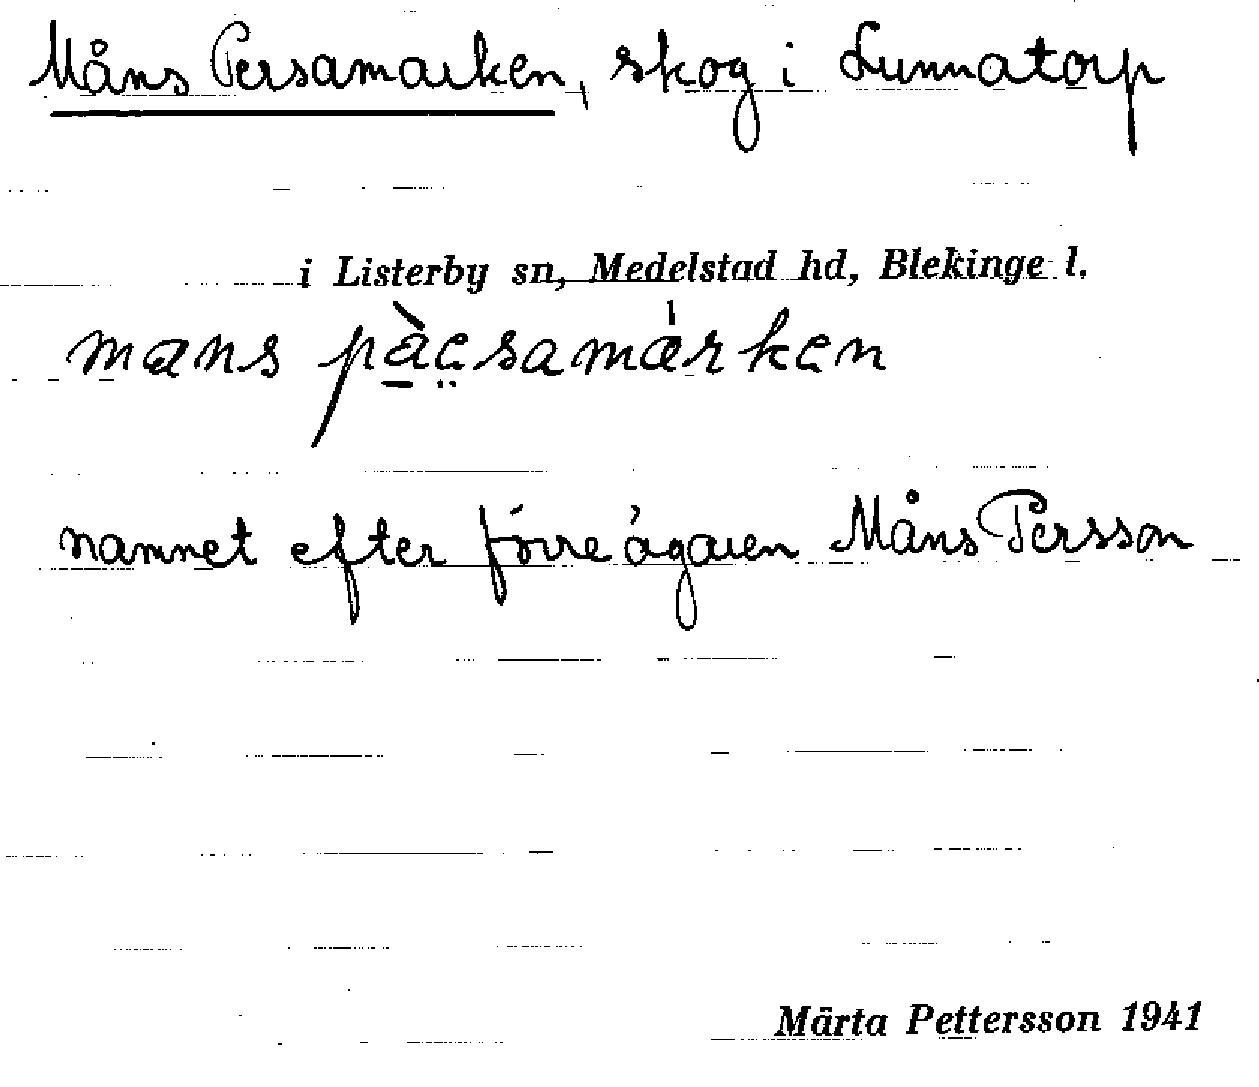 Måns Persamarken, skog i Lunnatorp
i Listerby sn, Medelstad hd, Blekinge l.
namnet efter förre ägaren Måns Persson
Märta Pettersson 1941